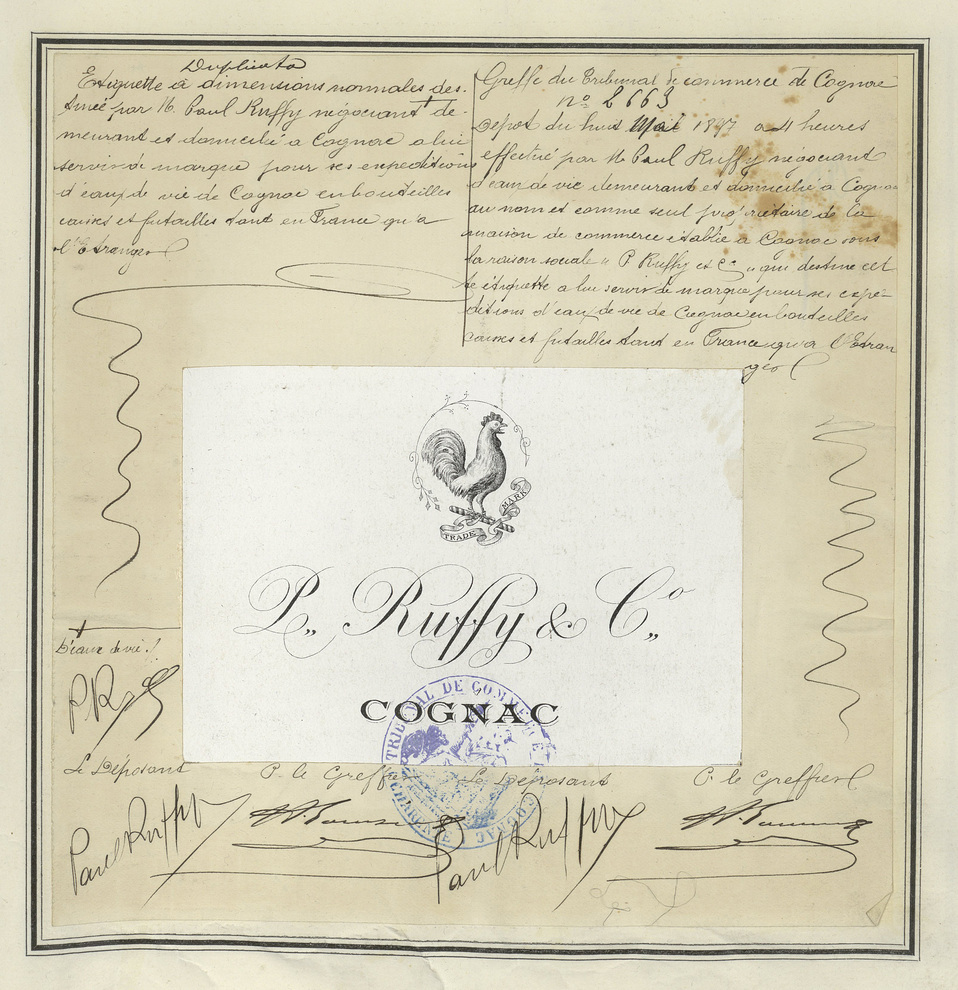 Duplicata
Etiquette à dimensions normales des-
tinée par M. Paul Ruffy négociant de-
meurant et domicilié a Cognac a lui
servir de marque pour ses expeditions
d'eaux de vie de Cognac en bouteilles
caisses et futailles tant en France qu'a
l'Etranger
Greffe du Tribunal de commerce de Cognac
n° 2663
Dépot du huit Mai 1897 a 4 heures
effectué par M. Paul Ruffy négociant
d'eaux de vie demeurant et domicilié a Cognac
au nom et comme seul propriétaire de la
maison de commerce établie a Cognac sous
la raison sociale " P. Ruffy et Cie " qui destine cet
te étiquette a lui servir de marque pour ses expé-
ditions d'eaux de vie de Cognac en bouteilles
caisses et futailles tant en France qu'a l'Etran
ger
TRADE MARK
P. Ruffy & Co.
COGNAC
TRIBUNAL DE COMMERCE COGNAC CHARENTE
D'eaux de vie
PR
Le Déposant P. le Greffier Le Déposant P. le Greffier
Paul Ruffy Paul Ruffy